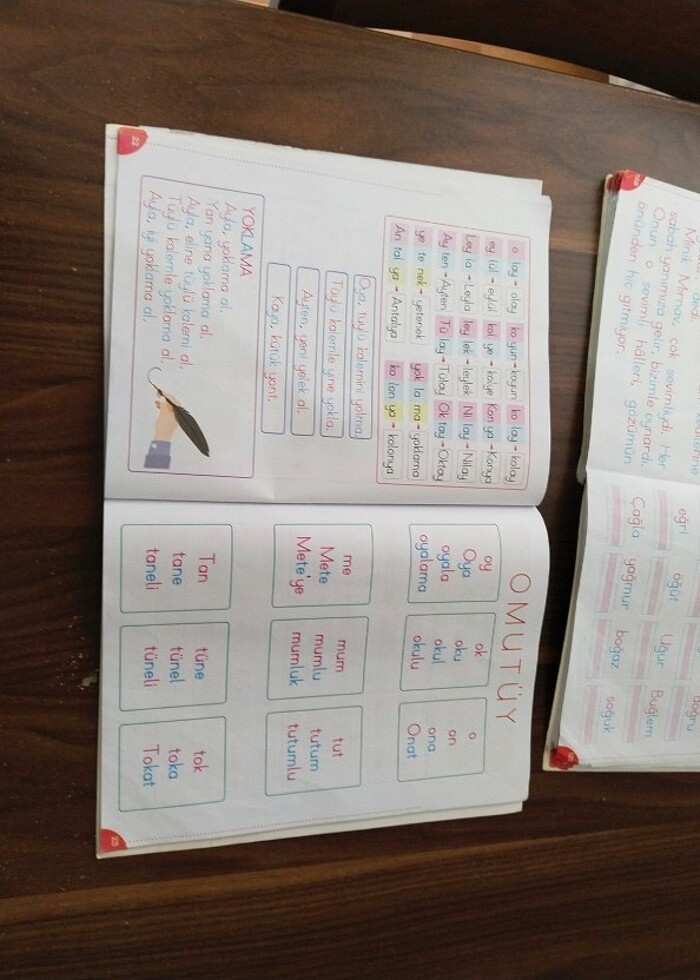 o lay → olay ko yun → koyun ko lay → kolay
ey lül → eylül kol ye → kolye Kon ya → Konya
Ley la → Leyla ley lek → leylek Ni lay → Nilay
Ay ten → Ayten Tü lay → Tülay Ok tay → Oktay
ye te nek → yetenek yok la ma → yoklama
An tal ya → Antalya ko lon ya → kolonya
Oya, tüylü kalemini yolma.
Tüylü kalemle yine yokla.
Ayten, yeni yelek al.
Kaya, kütük yont.
YOKLAMA
Ayla, yoklama al.
Yan yana yoklama al.
Ayla, eline tüylü kalemi al.
Tüylü kalemle yoklama al.
Ayla, iyi yoklama al.
22
OMUTÜY
oy
Oya
oyala
oyalama
ok
oku
okul
okulu
o
on
ona
Onat
me
Mete
Mete'ye
mum
mumlu
mumluk
tut
tutum
tutumlu
Tan
tane
taneli
tüne
tünel
tüneli
tok
toka
Tokat
23
sabah yanımıza gelir, bizimle oynardı.
Onun o sevimli hâlleri, gözümün
önünden hiç gitmiyor.
eğri öğüt Uğur Buğlem
Çağla yağmur boğaz soğuk